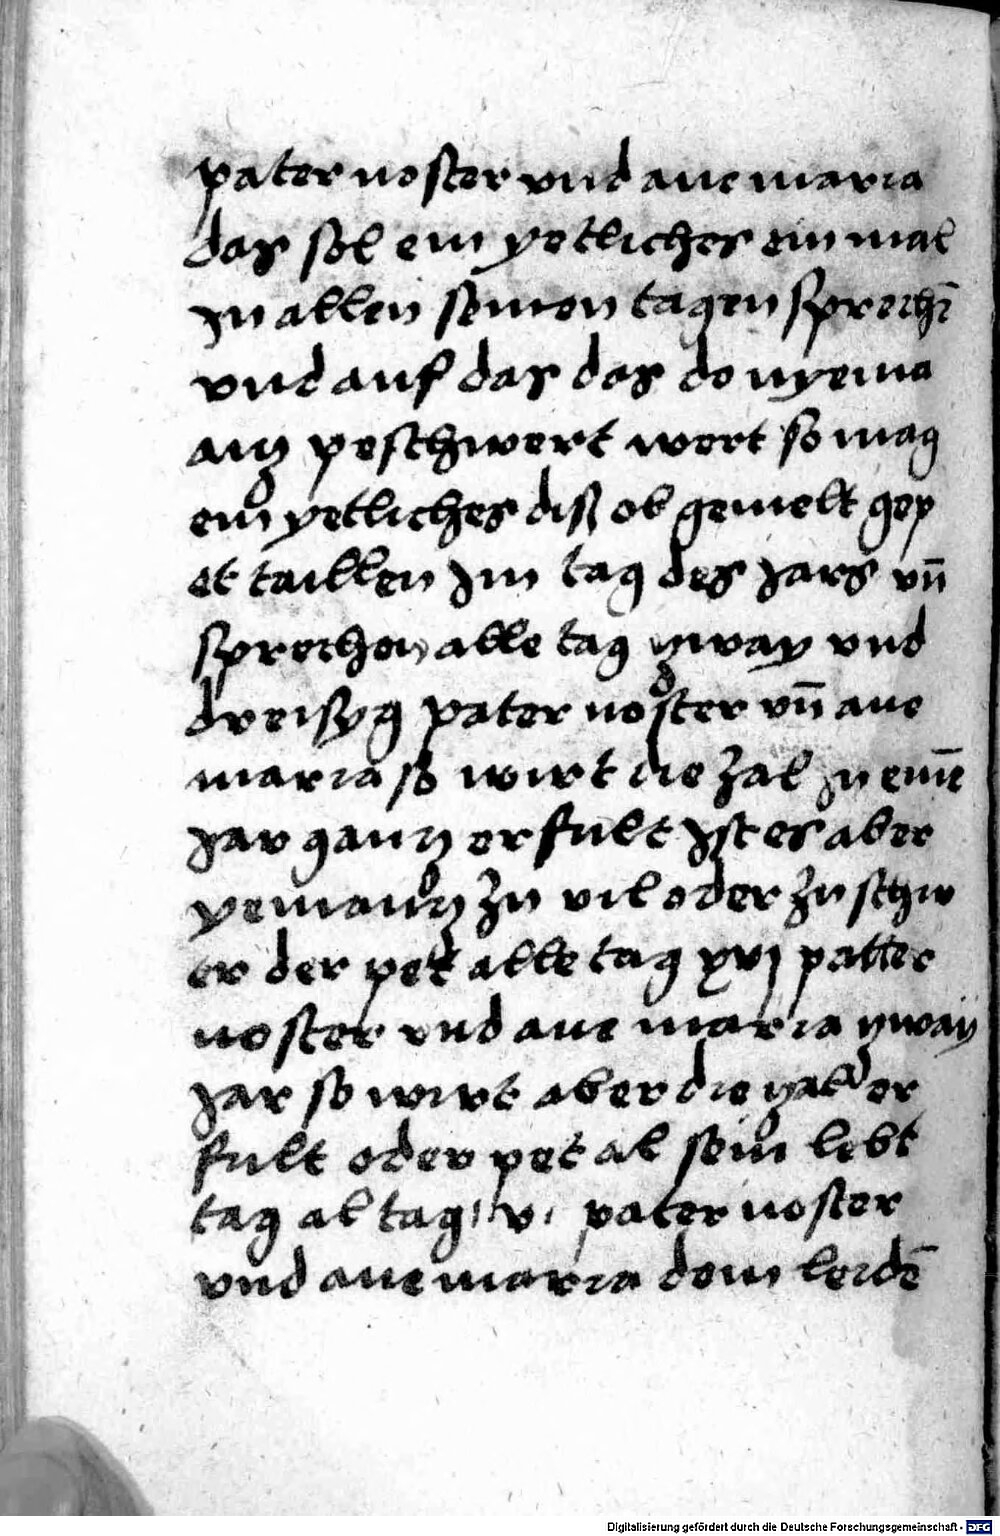 pater noster vnd aue maria
das sol ein yetliches ein mal
in allen seinen tagen sprechē
vnd auf das das do nyema
antz peschwert wert so mag
ein yetliches diß ob gemelt gep
et taillen jm tag des jars vn̄
sprechen alle tag zway vnd
dreisyg pater noster vn̄ aue
maria so wirt die zal jn eine̅
jar gantz erfult jst es aber
yemantz zu vil oder zu schw
er der pet alle tag xvj patter
noster vnd aue maria zway
jar so wirt aber die zal er
fult oder pet al sein lebt
tag al tag v pater noster
vnd aue maria dem leidē
Digitalisierung gefördert durch die Deutsche Forschungsgemeinschaft - DFG